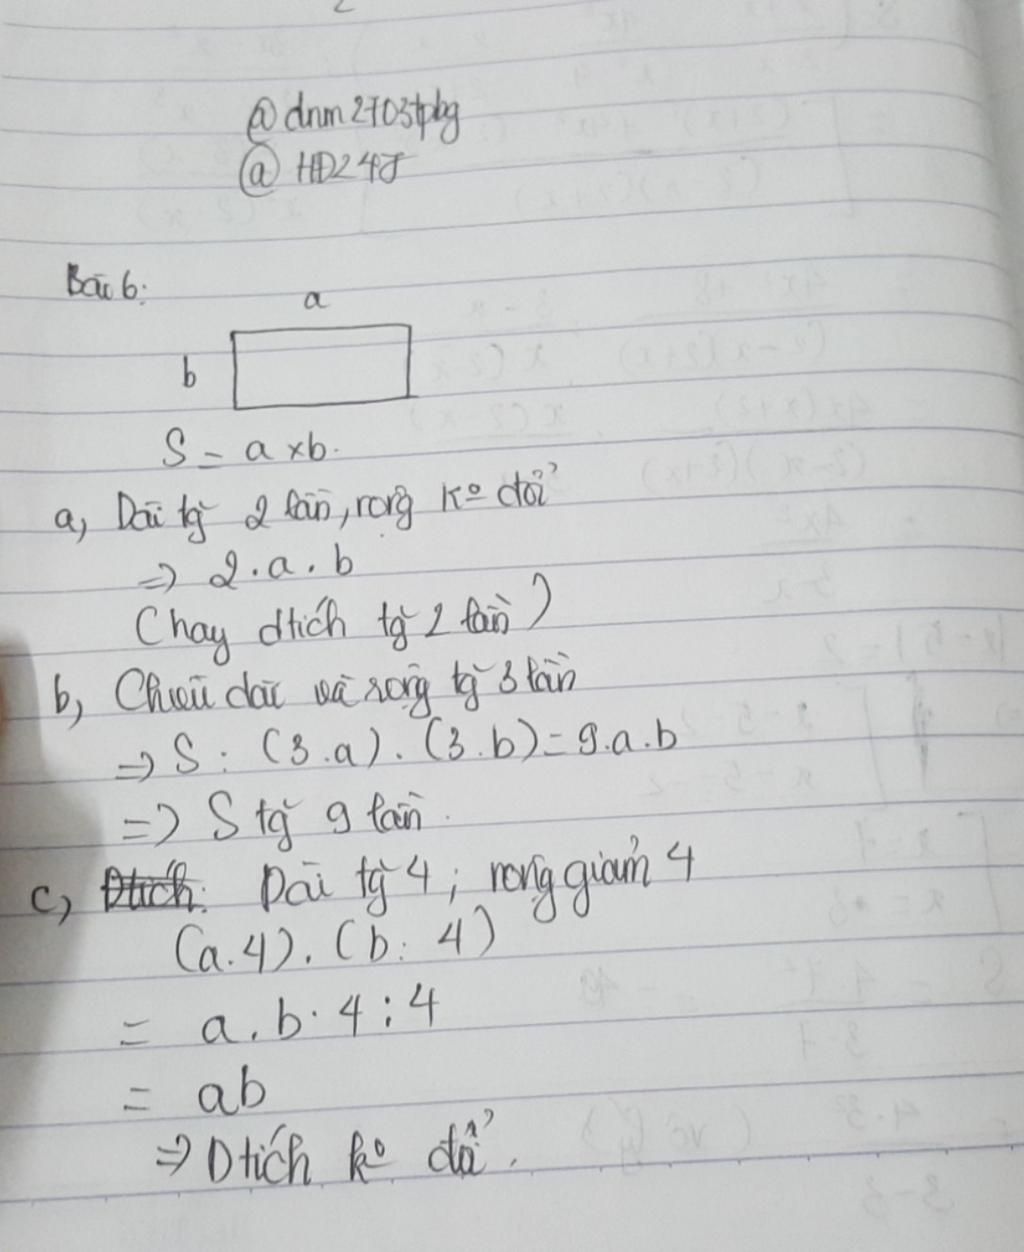 @dnm2703tpbg
@HD24J
Bài 6:
a
b
S = a x b.
a, Dài tg 2 lần, rộng ko đổi
=> 2.a.b
(hay dtích tg 2 lần)
b, Chiều dài và rộng tg 3 lần
=> S : (3.a).(3.b)=9.a.b
=> S tg 9 lần.
c, Dài tg 4; rộng giảm 4
(a.4).(b:4)
= a.b.4:4
= ab
=> Dtích ko đổi.